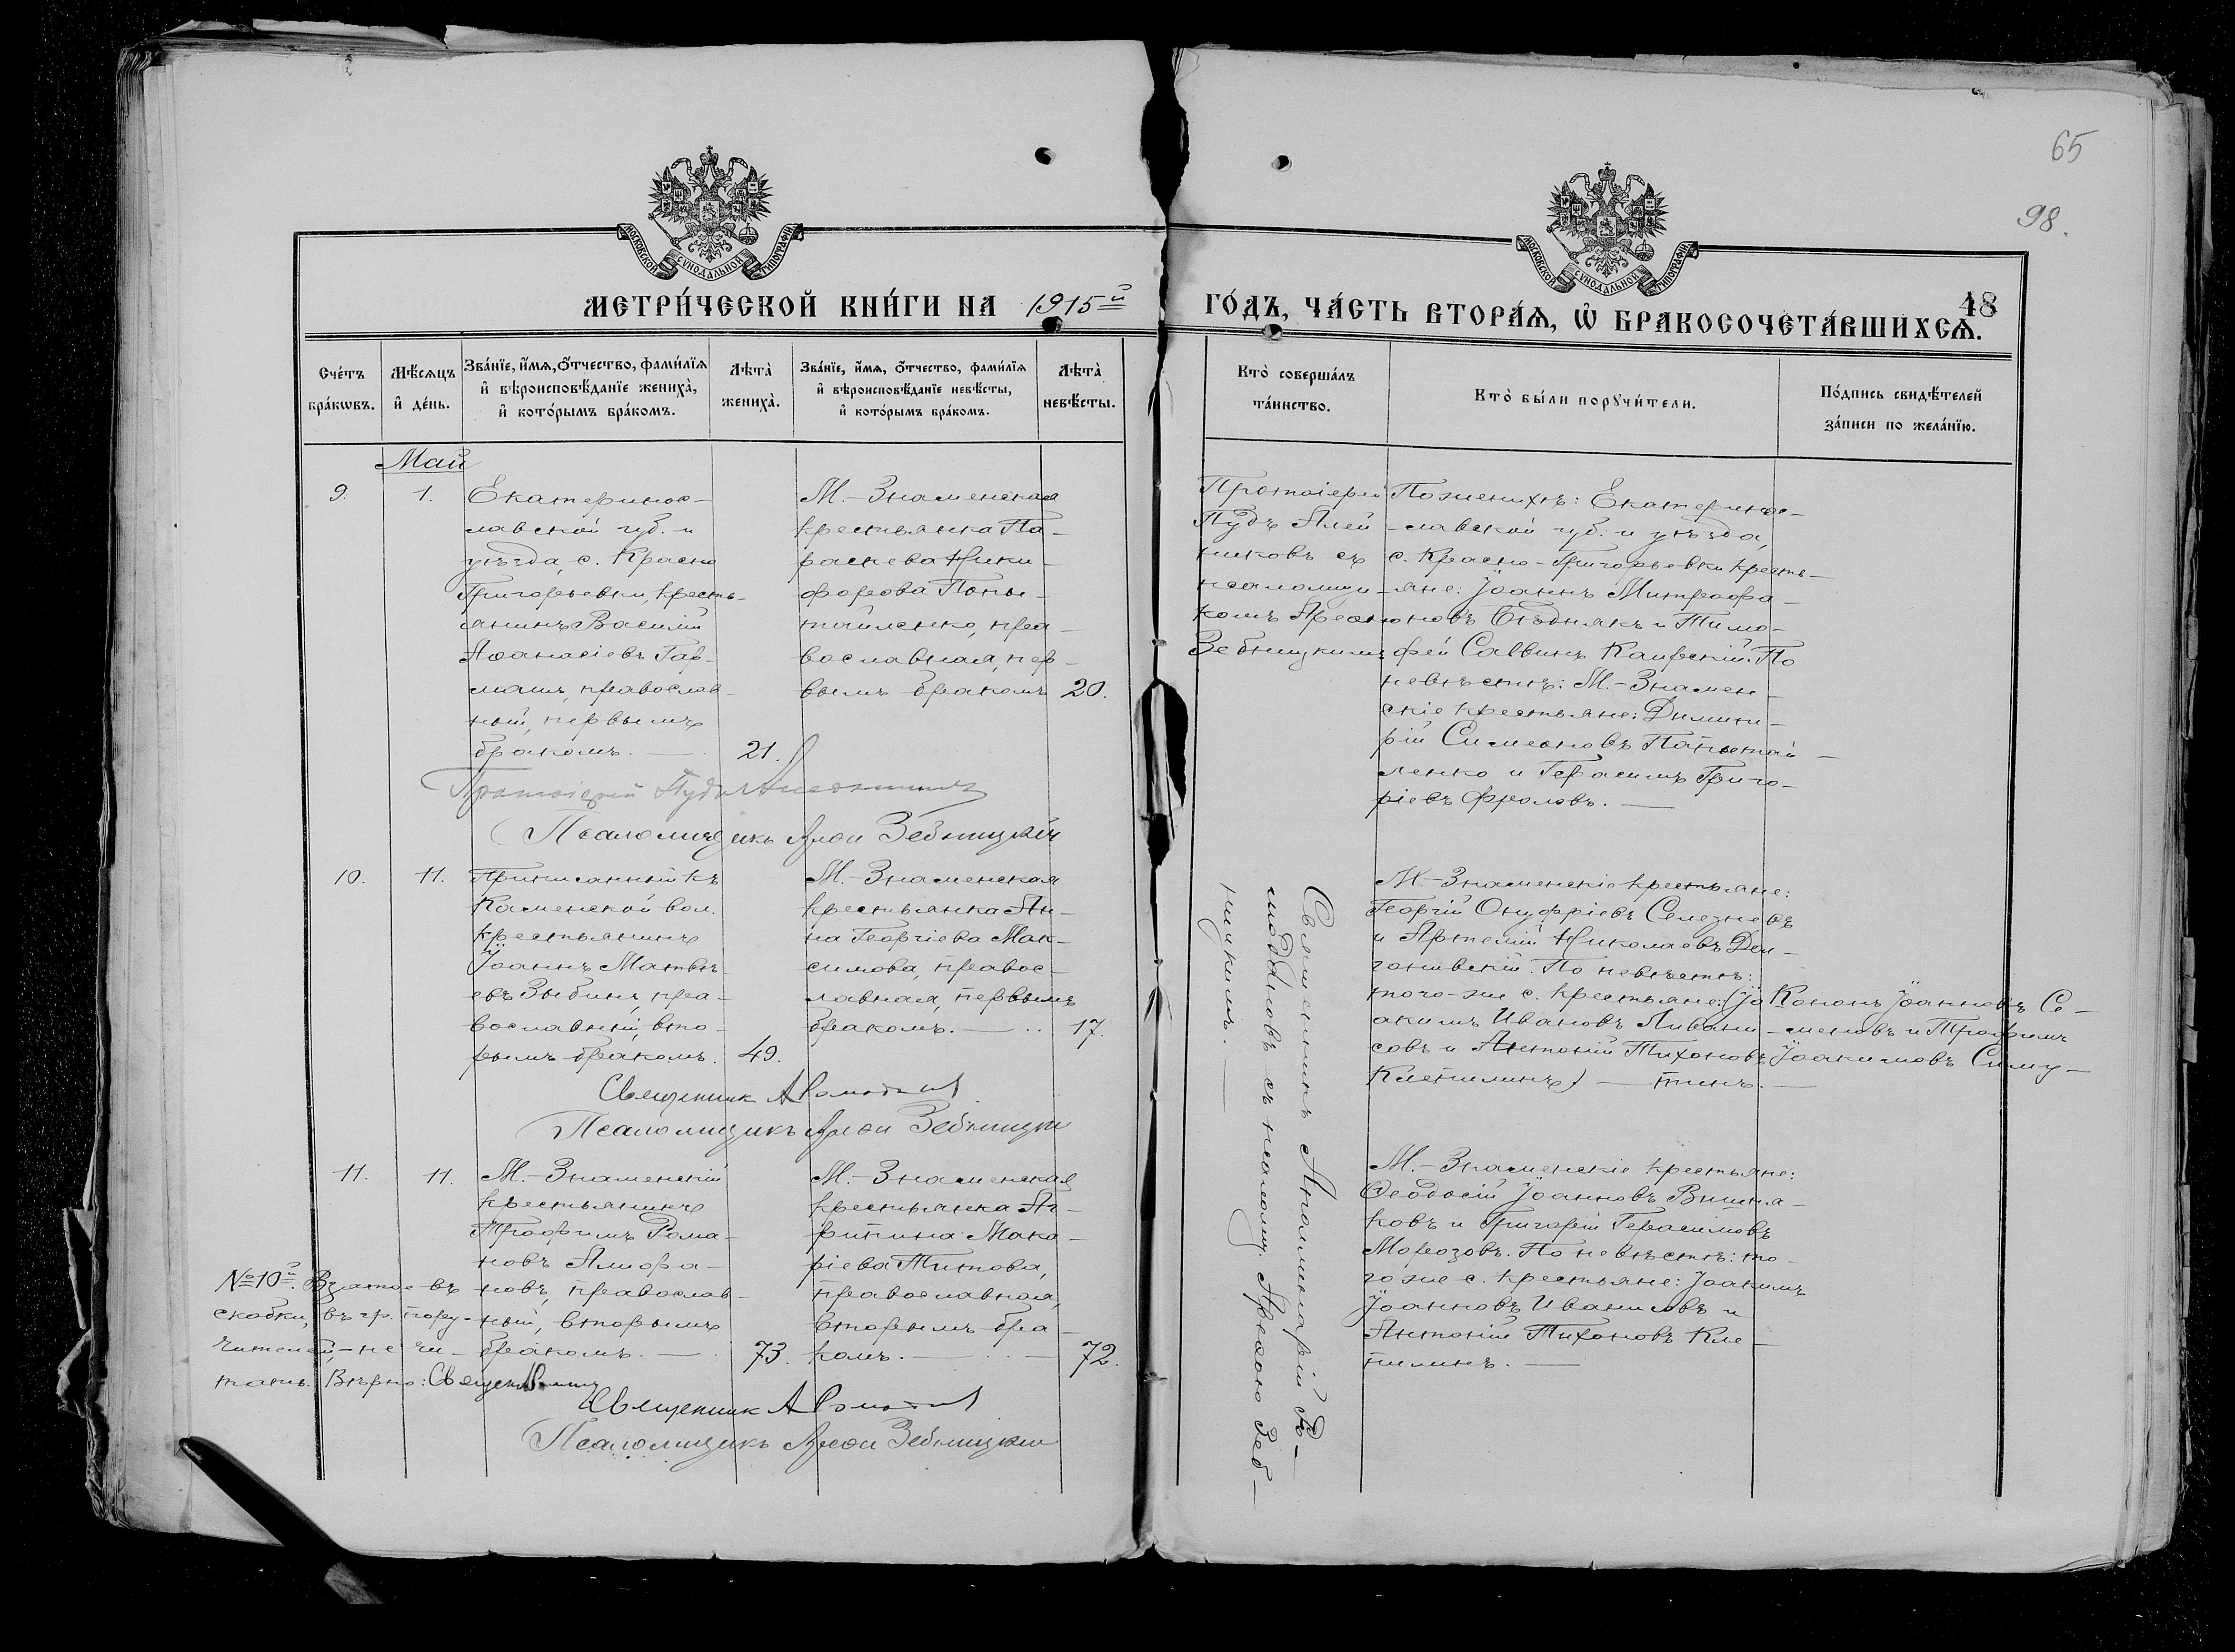 65
98.
МОСКОВСКОЙ СУНОДАЛЬНОЙ ТИПОГРАФІИ
МОСКОВСКОЙ СУНОДАЛЬНОЙ ТИПОГРАФІИ
МЕТРИ́ЧЕСКОЙ КНИ́ГИ НА 1915й
ГО́ДЪ, ЧА́СТЬ ВТОРА́Ѧ, Ѡ БРАКОСОЧЕТА́ВШИХСѦ.
48
Сче́тъ бра́кѡвъ.
Мѣ́сѧцъ и҆ де́нь.
Зва́нїе, и҆́мѧ, ѻ҆́тчество, фами́лїѧ
и҆ вѣроисповѣ́данїе жениха̀,
и҆ кото́рымъ бра́комъ.
Лѣта̀ жениха̀.
Зва́нїе, и҆́мѧ, ѻ҆́тчество, фами́лїѧ
и҆ вѣроисповѣ́данїе невѣ́сты,
и҆ кото́рымъ бра́комъ.
Лѣта̀ невѣ́сты.
Кто̀ соверша́лъ
та́инство.
Кто̀ бы́ли порꙋчи́тели.
По́дпись свидѣ́телей
за́писи по жела́нїю.
Май
9.
1.
Екатеринос-
лавской губ. и
уѣзда, с. Красно
Григорьевки, кресть-
янинъ Василій
Аѳанасіевъ Гар-
машъ, православ-
ный, первымъ
бракомъ. —
21.
М.-Знаменская
крестьянка Па-
раскева Ники-
форова Попы-
тайленко, пра-
вославная, пер-
вымъ бракомъ
20.
Протоіерей
Пудъ Алей-
никовъ съ
псаломщи-
комъ Арсен
Зебницкимъ
По женихѣ: Екатеринос-
лавской губ. и уѣзда,
с. Красно-Григорьевки кресть-
яне: Іоаннъ Митрофа-
новъ Бѣднякъ и Тимо-
фей Саввинъ Каирскій. По
невѣстѣ: М.-Знамен-
скіе крестьяне: Димит-
рій Симеоновъ Попытай-
ленко и Герасимъ Григо-
ріевъ Фроловъ. —
Протоіерей Пудъ Алейниковъ
Псаломщикъ Арсен Зебницкій
10.
11.
Приписанный къ
Каменской вол.
крестьянинъ
Іоаннъ Матвѣ-
евъ Зыбинъ, пра-
вославный, вто-
рымъ бракомъ.
49.
М.-Знаменская
крестьянка Ан-
на Георгіева Мак-
симова, правос-
лавная, первымъ
бракомъ. —
17.
Священникъ
съ псаломщ.
Зеб-
ницкимъ. —
М.-Знаменскіе крестьяне:
Георгій Онуфріевъ Селезневъ
и Артемій Николаевъ
По невѣстѣ:
того-же с. крестьяне: (Іо
акимъ Ивановъ
и Антоній Тихоновъ
Клепилинъ) —
Кононъ Іоанновъ Се-
меновъ и Трофимъ
Іоакимовъ Симу-
тинъ. —
Священник А
Псаломщикъ Арсен Зебницкій
11.
11.
М.-Знаменскій
крестьянинъ
Трофимъ Рома-
новъ Алифа-
новъ, православ-
ный, вторымъ
бракомъ. —
73.
М.-Знаменская
крестьянка Аг-
рипина Мака-
ріева Титова,
православная,
вторымъ бра-
комъ. —
72.
М.-Знаменскіе крестьяне:
Ѳеодосій Іоанновъ Вишня-
ковъ и Григорій Герасимовъ
Морозовъ. По невѣстѣ: то-
го же с. крестьяне: Іоакимъ
Іоанновъ Иванисовъ и
Антоній Тихоновъ Кле-
пилинъ. —
№10й. Взятое въ
скобки, въ гр. пору-
чителей, - не чи-
тать. Вѣрно: Священникъ
Священник А
Псаломщикъ Арсен Зебницкій